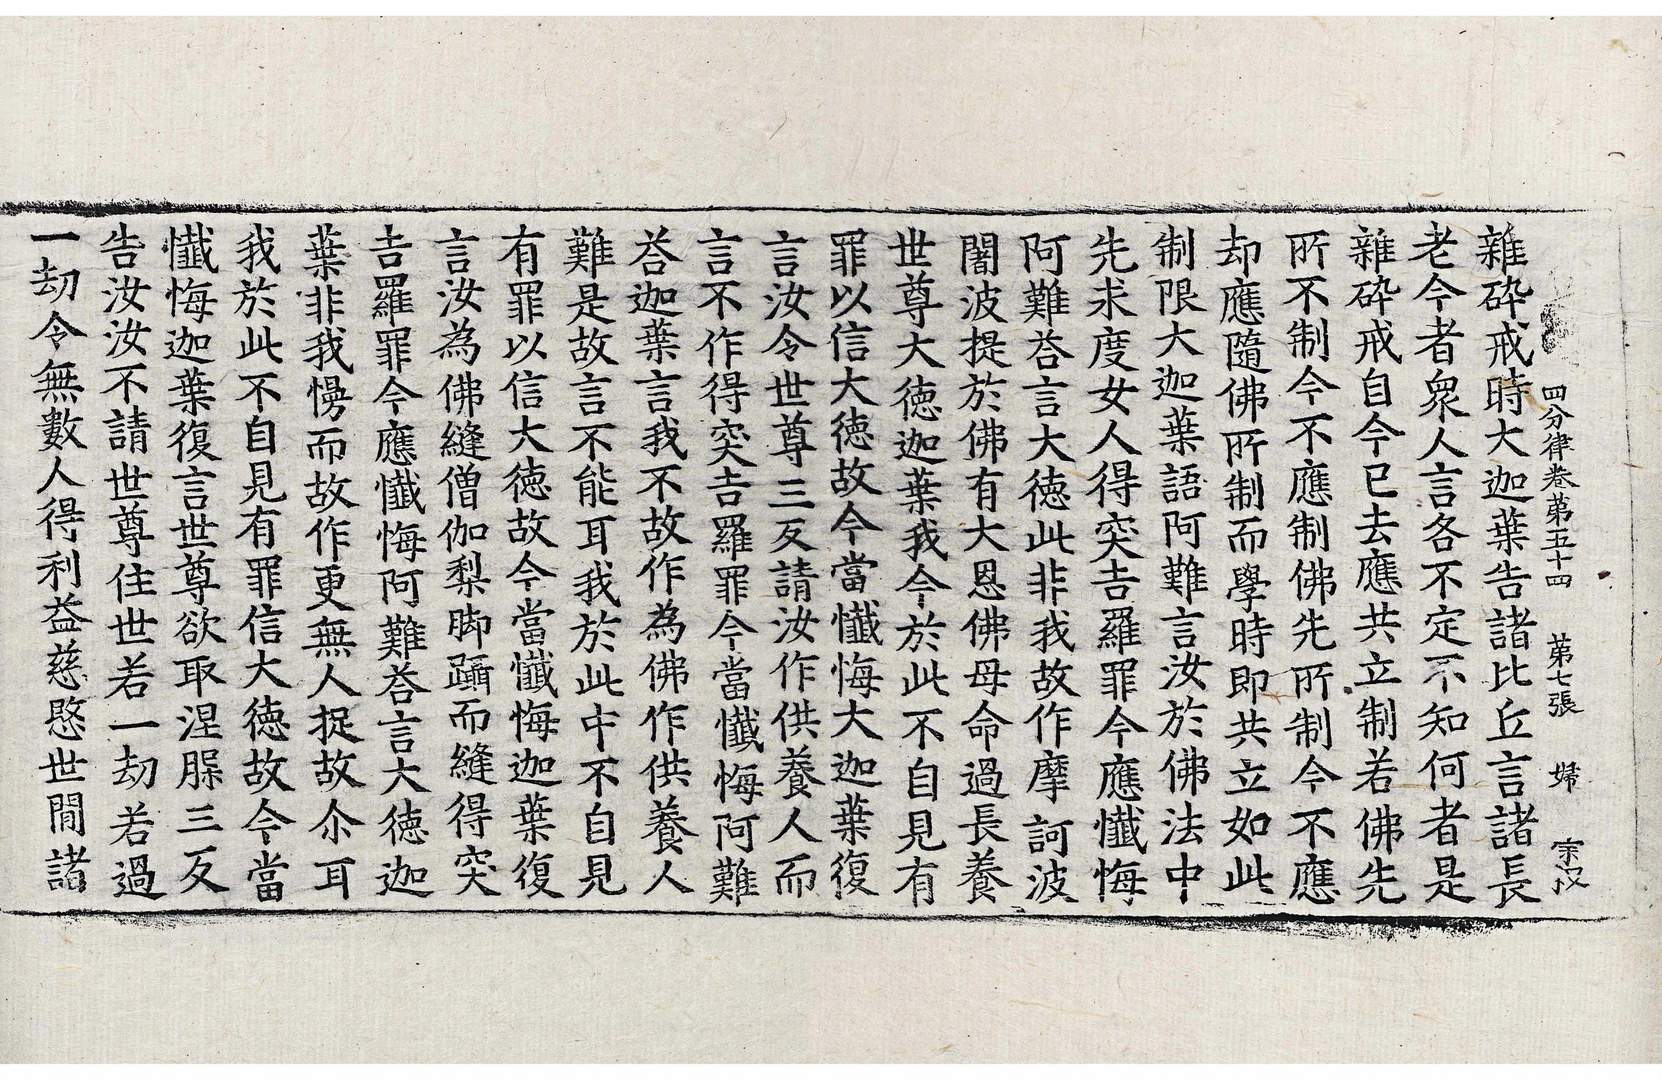 四分律卷第五十四 第七張 婦 宗汉
雜碎戒時大迦葉告諸比丘言諸長
老今者衆人言各不定不知何者是
雜碎戒自今已去應共立制若佛先
所不制今不應制佛先所制今不應
却應隨佛所制而學時即共立如此
制限大迦葉語阿難言汝於佛法中
先求度女人得突吉羅罪今應懺悔
阿難荅言大德此非我故作摩訶波
闍波提於佛有大恩佛母命過長養
世尊大德迦葉我今於此不自見有
罪以信大德故今當懺悔大迦葉復
言汝令世尊三反請汝作供養人而
言不作得突吉羅罪今當懺悔阿難
荅迦葉言我不故作為佛作供養人
難是故言不能耳我於此中不自見
有罪以信大德故今當懺悔迦葉復
言汝為佛縫僧伽梨脚躡而縫得突
吉羅罪今應懺悔阿難荅言大德迦
葉非我慢而故作更無人捉故尒耳
我於此不自見有罪信大德故今當
懺悔迦葉復言世尊欲取涅槃三反
告汝汝不請世尊住世若一劫若過
一劫令無數人得利益慈愍世間諸